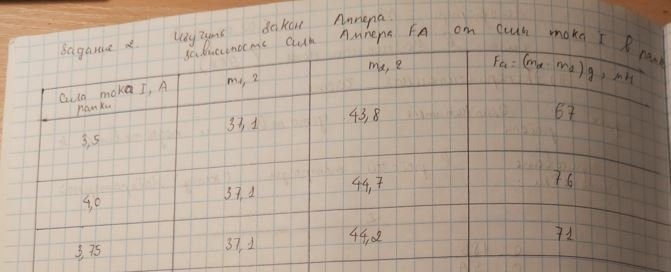 Задание 2. Изучить закон Ампера.
зависимость силы Ампера FA от силы тока I в рамке
Сила тока I, А
рамки
m₁, г
m₂, г
Fa = (m₂ - m₁)g, мН
3,5
37,1
43,8
67
4,0
37,1
44,7
76
3,75
37,1
44,2
71